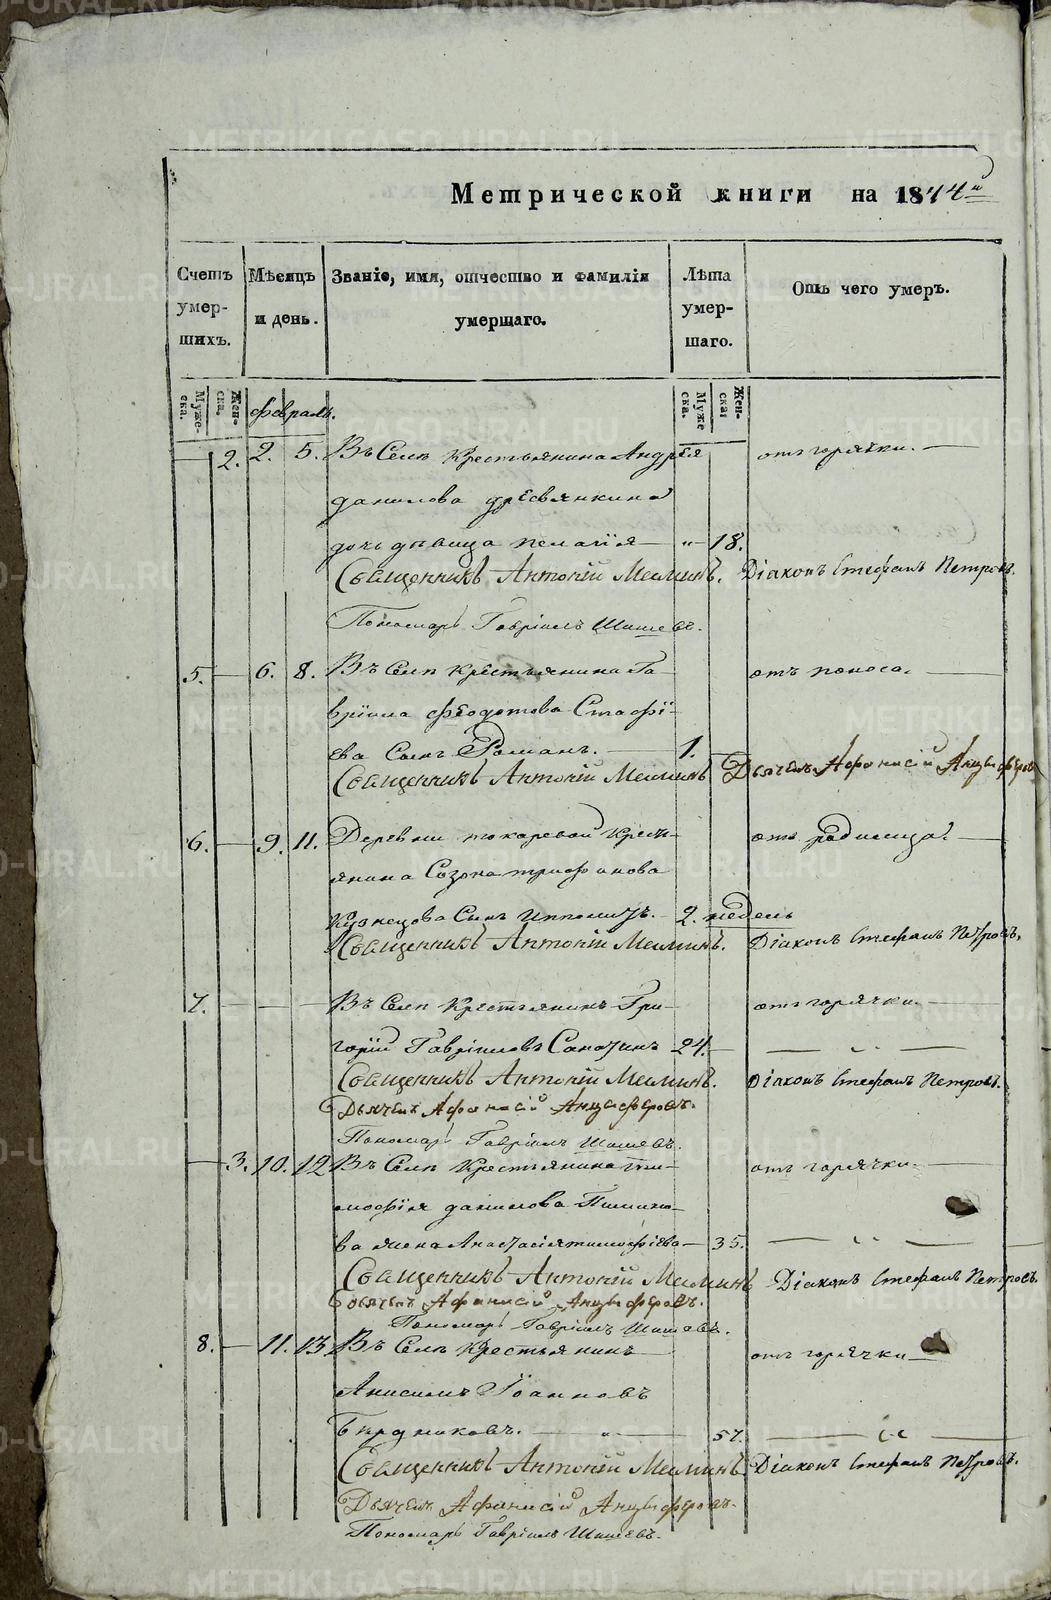 Метрической книги на 1844 й
Счетъ умершихъ.
Мѣсяцъ и день.
Званіе, имя, отчество и фамилія умершаго.
Лѣта умершаго.
Отъ чего умеръ.
Мужеска.
Женска.
февраль.
Мужеска.
Женска
2. 2. 5. Въ Селѣ Крестьянина Андрея
отъ горячки.
данилова дресвянкина
дочь дѣвица Пелагія — „ — 18.
Священникъ Антоній Меминъ. Діаконъ Стефанъ Петровъ.
Пономарь Гавріилъ Шишевъ.
5. — 6. 8. Въ Селѣ Крестьянина Га-
отъ поноса.
вріила Феодотова Стафѣ-
ева Сынъ Романъ. — 1.
Священникъ Антоній Меминъ Дьячекъ Афанасій Анцыферовъ
6. — 9. 11. Деревни токаревой Кресть-
отъ родимца.
янина Созона трифонова
Кузнецова Сынъ Ипполитъ. — 2. недель
Священникъ Антоній Меминъ. Діаконъ Стефанъ Петровъ.
7. — — — Въ Селѣ Крестьянинъ Гри-
отъ горячки.
горій Гавріиловъ 24.
Священникъ Антоній Меминъ. Діаконъ Стефанъ Петровъ.
Дьячекъ Афанасій Анцыферовъ.
Пономарь Гавріилъ Шишевъ.
— 3. 10. 12 Въ Селѣ Крестьянина Ти-
отъ горячки.
мофѣя данилова
ва жена Анастасія тимофѣева — 35.
Священникъ Антоній Меминъ Діаконъ Стефанъ Петровъ.
Дьячекъ Афанасій Анцыферовъ.
Пономарь Гавріилъ Шишевъ.
8. — 11. 13. Въ Селѣ Крестьянинъ
отъ горячки
Анисимъ Іоанновъ
— „ — 57.
Священникъ Антоній Меминъ. Діаконъ Стефанъ Петровъ.
Дьячекъ Афанасій Анцыферовъ.
Пономарь Гавріилъ Шишевъ.
METRIKI.GASO-URAL.RU